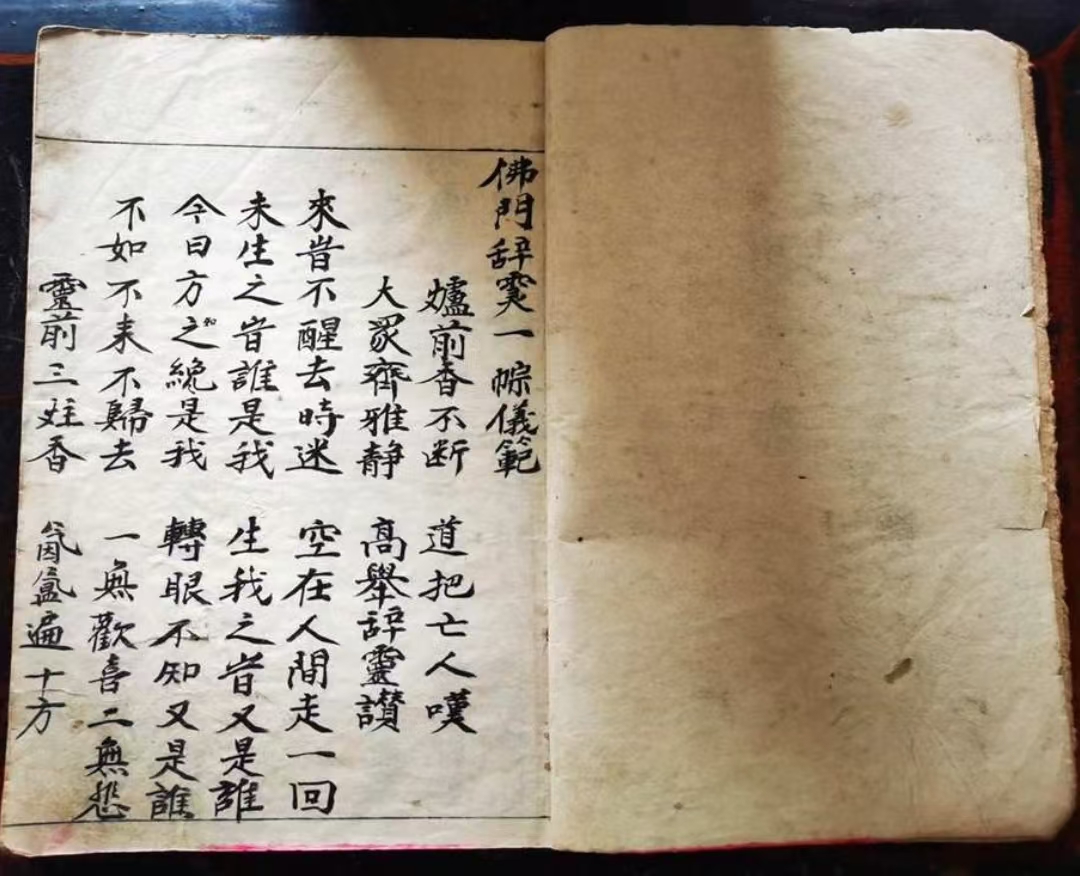 佛門辞霛一宗儀範
爐前香不断 道把亡人嘆
大眾齊雅静 高舉辞靈讃
來旹不醒去時迷 空在人間走一回
未生之旹誰是我 生我之旹又是誰
今日方之知纔是我 轉眼不知又是誰
不如不来不歸去 一無歡喜二無悲
靈前三炷香 氤氲遍十方